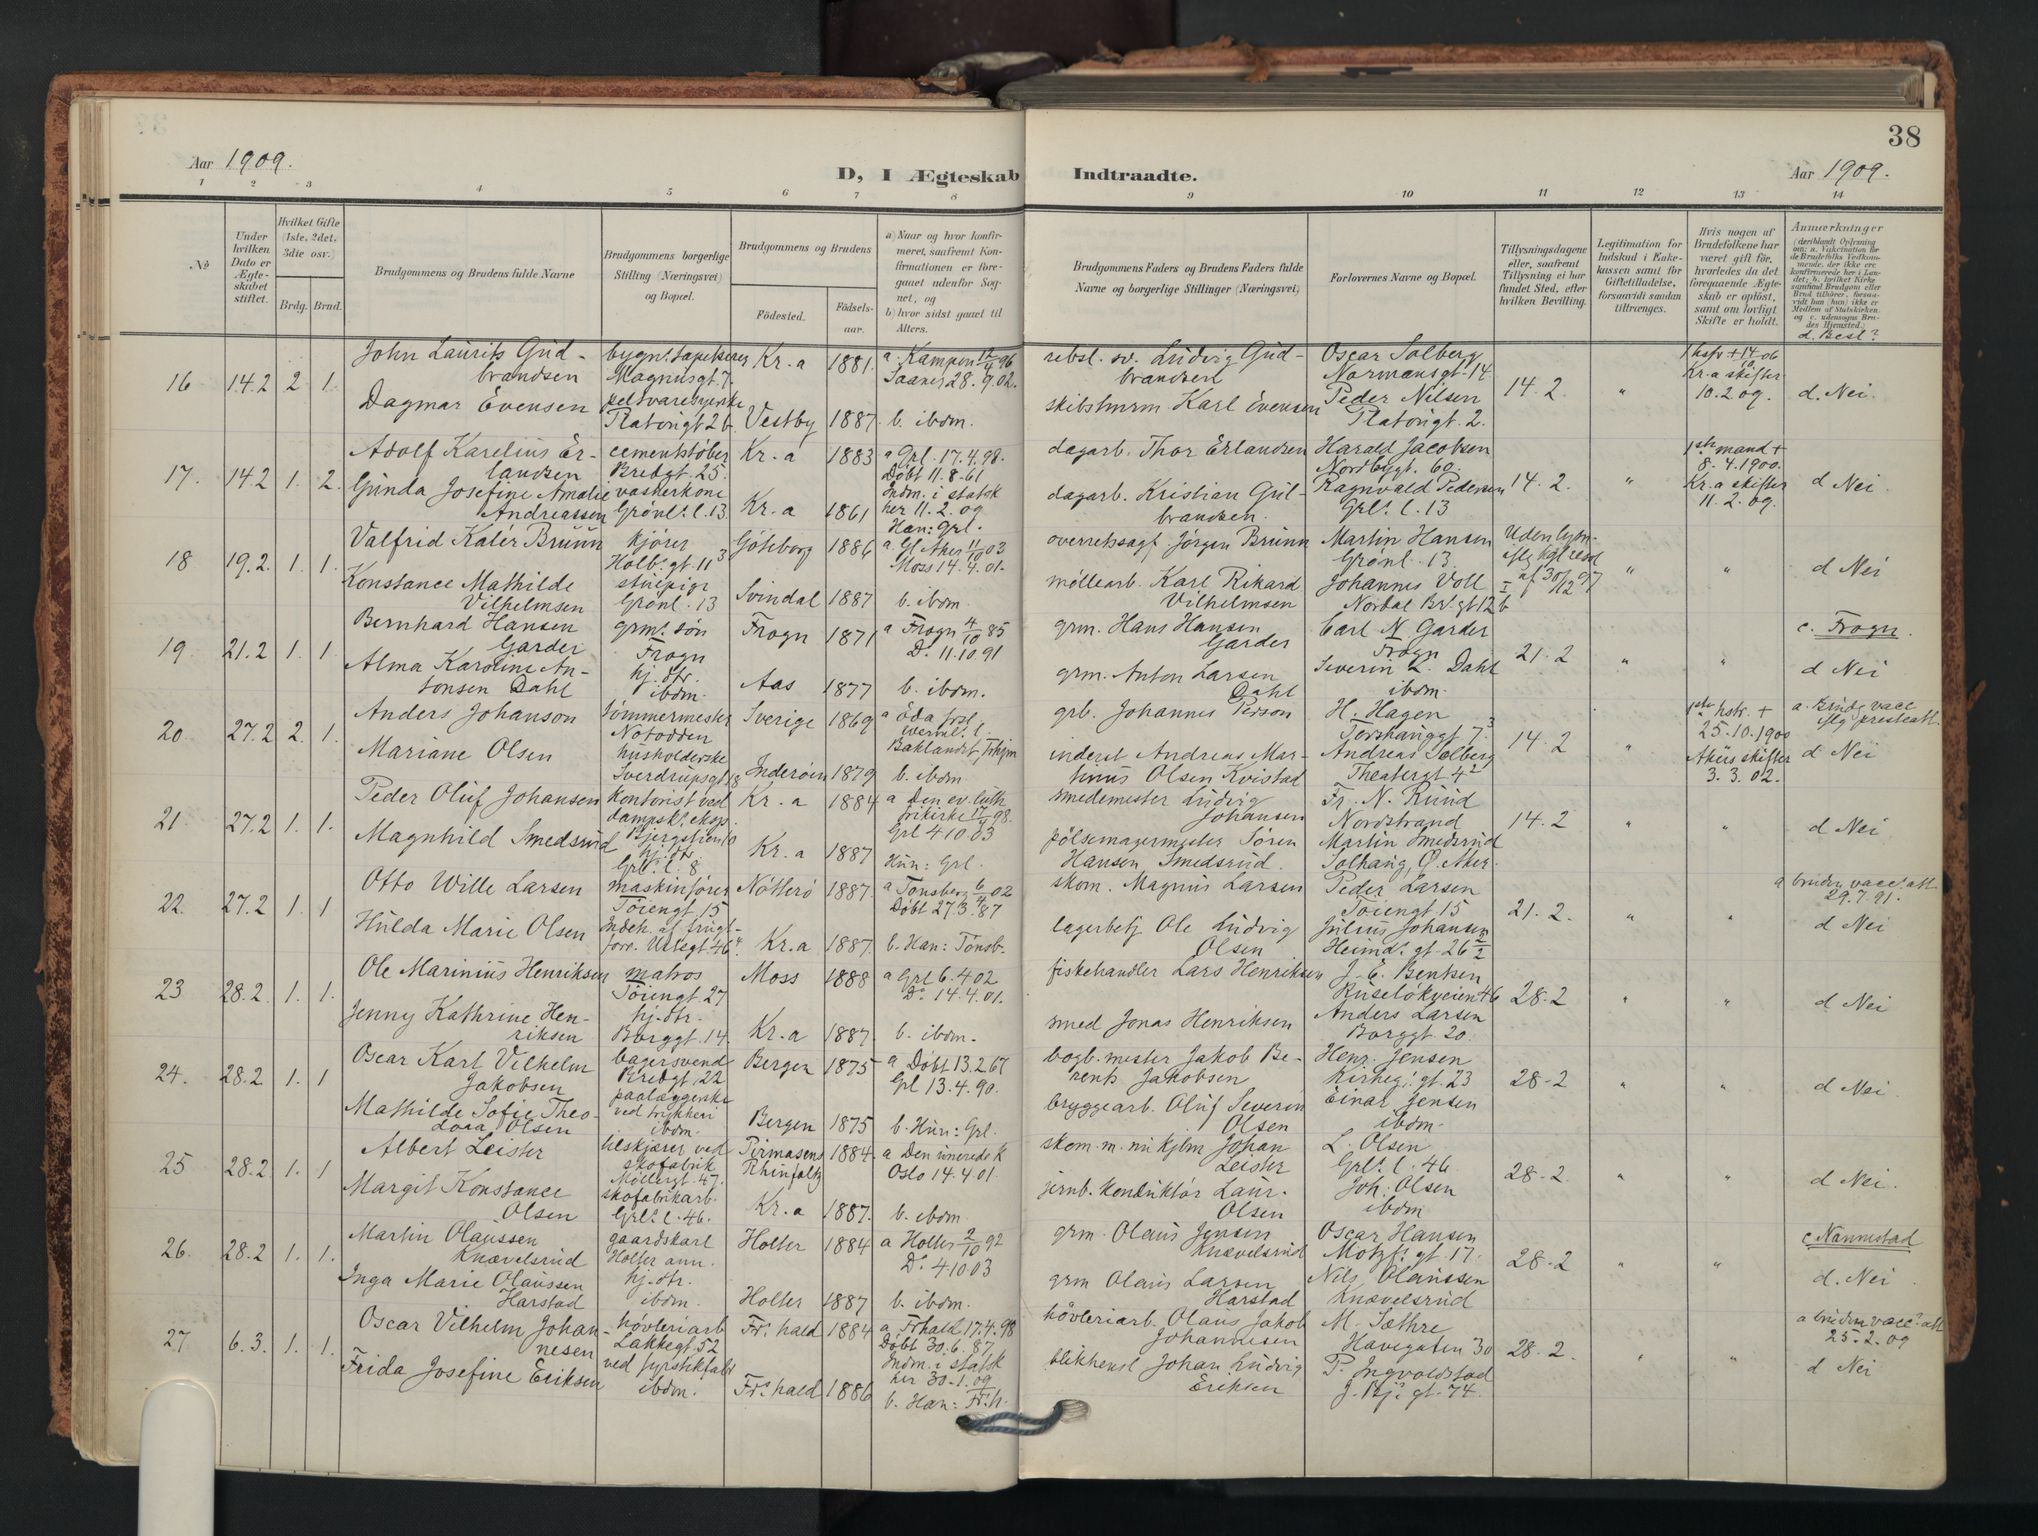 38
Aar 1909.
D, I Ægteskab Indtraadte.
Aar 1909.
1 2 3 4 5 6 7 8 9 10 11 12 13 14
No
Under hvilken Dato er Ægteskabet stiftet.
Hvilket Gifte (1ste, 2det, 3die osv.)
Brdg. Brud.
Brudgommens og Brudens fulde Navne
Brudgommens borgerlige Stilling (Næringsvei) og Bopæl.
Brudgommens og Brudens
Fødested. Fødselsaar.
a) Naar og hvor konfirmeret, saafremt Konfirmationen er foregaaet udenfor Sognet, og
b) hvor sidst gaaet til Alters.
Brudgommens Faders og Brudens Faders fulde Navne og borgerlige Stillinger (Næringsvei)
Forlovernes Navne og Bopæl.
Tillysningsdagene eller, saafremt Tillysning ei har fundet Sted, efter hvilken Bevilling.
Legitimation for Indskud i Enkekassen samt for Giftetilladelse, forsaavidt saadan tiltrænges.
Hvis nogen af Brudefolkene har været gift før, hvorledes da det foregaaende Ægteskab er opløst, samt om lovligt Skifte er holdt.
Anmærkninger
d. Besl?
16 14.2 2 1.
John Laurits Gudbrandsen
Magnusgt. 7.
Kr.a 1881.
a. Kampen 12/4 96
Saaner 28.9.02.
rebsl. sv. Ludvig Gudbrandsen
Oscar Solberg
Normansgt. 14
14.2. "
Kr.a skifter
10.2.09.
d. Nei.
Dagmar Evensen
Platousgt 2 b.
Vestby 1887.
b. ibdm.
skibsturm Karl Evensen
Peder Nilsen
Platousgt. 2.
17. 14.2 1. 2.
Adolf Karelius Erlandsen
cementstøber
Bredgt. 25.
Kr.a 1883
a Grl. 17.4.98.
Døbt 11.8.61
dagarb. Thor Erlandsen
Harald Jacobsen
Nordbygt. 60.
14.2. "
1ste mand +
8.4.1900.
Kr.a skifter
11.2.09.
d Nei.
Gunda Josefine Amalie Andreassen
vaskerkone
Grønl. l. 13.
Kr.a 1861
Indm. i statsk
her 11.2.09
Han: Grl.
dagarb. Kristian Gulbrandsen.
Ragnvald Pedersen
Grl. l. 13
18 19.2. 1. 1.
Valfrid Kalér Bruun
kjører
Holb. gt 11³
Göteborg 1886
a. Gl. Aker 11/10 03
Moss 14.4.01.
overretssagf. Jørgen Bruun
Martin Hansen
Grønl. 13
Uden lysn.
iflg kgl resol
af 30/12 07
" "
d Nei
Konstance Mathilde Vilhelmsen
stuepige
Grønl. 13
Svindal 1887
b. ibdm.
møllearb. Karl Rikard Vilhelmsen
Johannes Voll
Nordal Br. gt 12 b
19. 21.2 1. 1.
Bernhard Hansen Garder
grm. søn
Frogn
Frogn 1871
a Frogn 4/10 85
Do. 11.10.91
grm. Hans Hansen Garder
Carl N. Garder
Frogn
21.2 " "
c. Frogn.
d Nei
Alma Karoline Antonsen Dahl
hj. dtr.
ibdm.
Aas 1877
b. ibdm.
grm. Anton Larsen Dahl
Severin L. Dahl
ibdm.
20. 27.2 2. 1.
Anders Johanson
tømmermester
Notodden
Sverige 1869
grb. Johannes Person
H. Hagen
Torshauggt 7.³
14.2 "
1ste hstr. +
25.10.1900
Akers skifter
3.3.02.
d Nei
Mariane Olsen
husholderske
Sverdrupsgt 18
Inderøen 1879
b. ibdm.
inderst Andreas Martinus Olsen Kvistad
Andreas Solberg
Theatergt 4²
21. 27.2 1. 1.
Peder Oluf Johansen
kontorist ved
dampsk. eksp.
Kr.a 1884
a Den ev. luth
frikirke 17/4 98.
Grl 4.10.03
smedemester Ludvig Johansen
Fr. N. Ruud
Nordstrand
14.2 " "
d Nei
Magnhild Smedsrud
hj. dtr
Grl. l. 8
Kr.a 1887
Hun: Grl.
pølsemagermester Søren Hansen Smedsrud.
Martin Smedsrud
Solhaug, Ø. Aker.
22. 27.2 1. 1
Otto Wille Larsen
maskinfører
Tøiengt 15
Nøtterø 1887.
a Tønsberg 6/4 02
Døbt 27.3.87
skom. Magnus Larsen
Peder Larsen
Tøiengt 15
21.2. " "
a bruden vacc. att.
29.7.91.
d Nei
Hulda Marie Olsen
Indeh. af frugtforr. Urtegt 46⁴.
Kr.a 1887.
b. Han: Tønsb.
lagerbetj Ole Ludvig Olsen
Julius Johansen
Heimd. gt. 26
23 28.2. 1. 1.
Ole Marinius Henriksen
matros
Tøiengt. 27
Moss 1888
a Grl 6.4.02
Do. 14.4.01.
fiskehandler Lars Henriksen
J. E. Bentsen
Ruseløkveien 46
28.2 " "
d Nei
Jenny Kathrine Henriksen
hj. dtr.
Borggt. 14.
Kr.a 1887.
b. ibdm.
smed Jonas Henriksen
Anders Larsen
Borggt 20.
24. 28.2. 1. 1
Oscar Karl Vilhelm Jakobsen
bagersvend
Bredgt. 22
Bergen 1875
a Døbt 13.2.67
Grl 13.4.90.
bogb. mester Jakob Berents Jakobsen
Henr. Jensen
Kirkeg. gt. 23
28.2 " "
d Nei.
Mathilde Sofie Theodora Olsen
paalæggerske
ved trykkeri
ibdm.
Bergen 1875
b. Hun: Grl.
bryggearb. Oluf Severin Olsen
Einar Jensen
ibdm.
25 28.2. 1. 1
Albert Leister
tilskjærer ved
skofabrik
Møllergt. 47.
Pirmasens
Rhinfaltz
1884.
Oslo 14.4.01.
skom. m. Johan Leister
L. Olsen
Grl. l. 46.
28.2. " "
d Nei.
Margit Konstance Olsen
skofabrikarb.
Grl. l. 46.
Kr.a 1887.
b. ibdm.
jernb. konduktør Laur. Olsen
Joh. Olsen
ibdm
26. 28.2 1. 1.
Martin Olaussen Knævelsrud
gaardskarl
Holter ann.
Holter 1884
a Holter 2/10 92
Do. 4.10.03
grm. Olaus Jensen Knævelsrud
Oscar Hansen
Motzf. gt. 17.
28.2 " "
c Nannestad
d. Nei
Inga Marie Olaussen Harstad
hj. dtr.
ibdm.
Holter 1887
b. ibdm.
grm Olaus Larsen Harstad
Nils Olaussen
Knævelsrud
27 6.3. 1. 1.
Oscar Vilhelm Johannesen
høvleriarb
Lakkegt. 52
Fr. hald 1884
a Fr hald 17.4.98
Døbt 30.6.87
høvleriarb. Olaus Jakob Johannesen
M. Sæthre
Havegaten 30
28.2. " "
a bruden vacc. att
25.2.09
d Nei
Frida Josefine Eriksen
ved fyrstikfabr
ibdm.
Fr. hald 1886
Indm. i statsk
her 30.1.09
b. Han: Fr.h.
blikkensl Johan Ludvig Eriksen
P. Ingvoldstad
J. Bj. gt. 74.